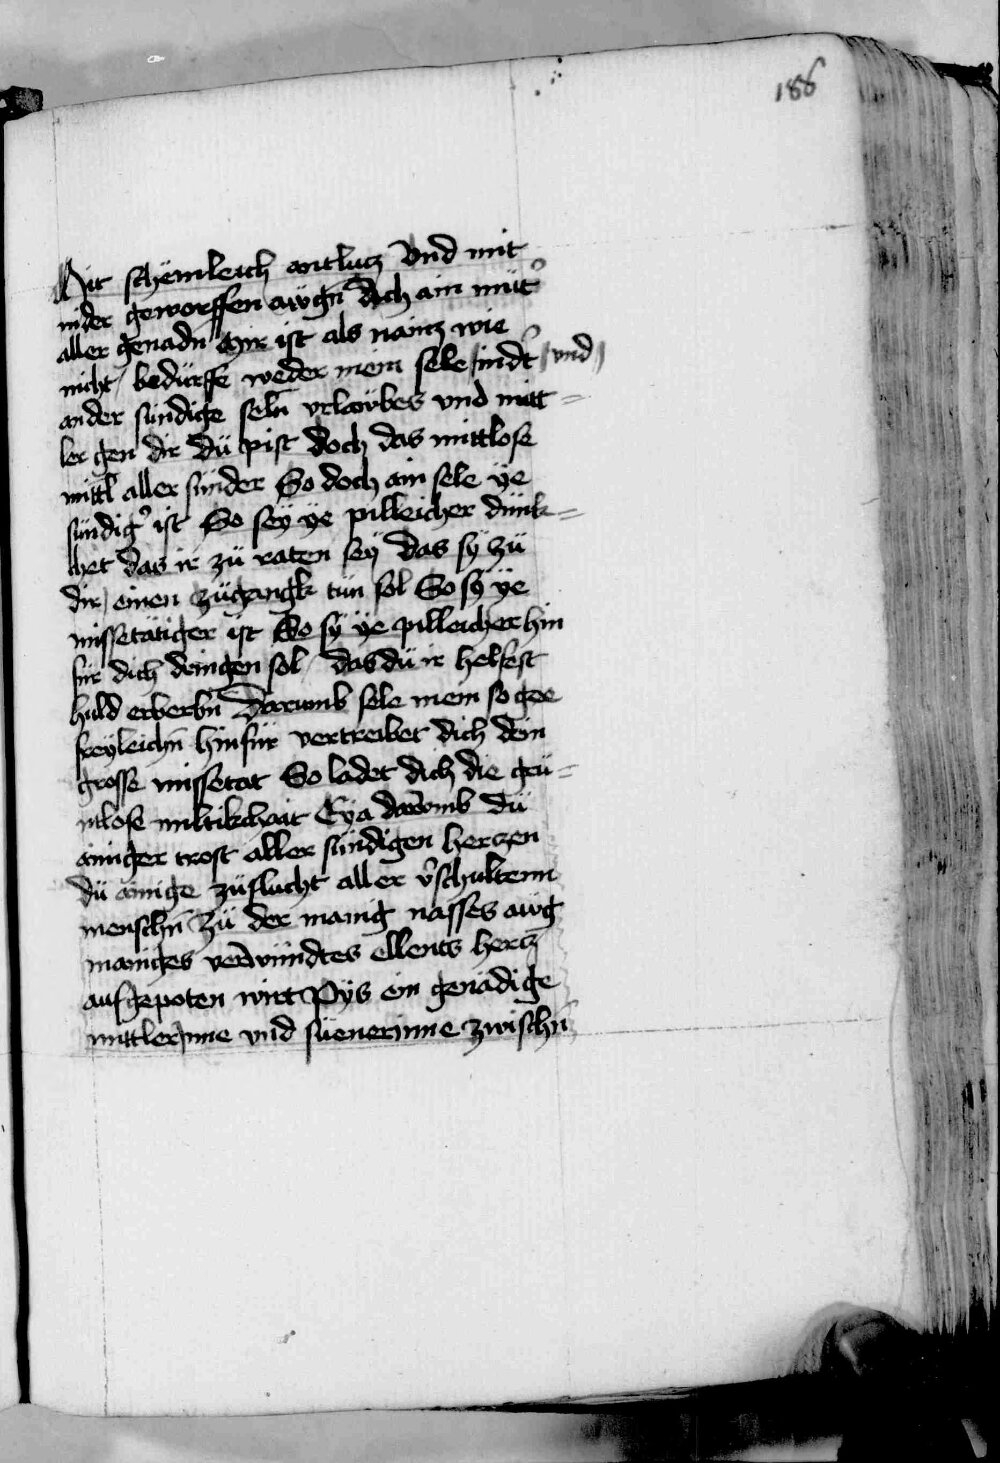 186
Mit schëmleich antlucz Vnd mit
nider geworffen awgn̄ Dich ain mut̾
aller genadn̄ Mir ist als naincz wie
nicht bedürffe weder mein sele indt̾ vnd
ander sündige seln̄ vrlawbes vnd mitt=
ler gen dir Dü pist doch das mittlose
mittl aller sünder So doch ain sele ye
sündig̾ ist So sey ye pilleicher dünk=
chet das ir zü raten sey das sy zü
dir einen zügangk tün sol So sy ye
missetätiger ist So sy ye pilleicher hin
für dich dringen sol das dü ir helfest
huld erberbn̄ Darumb sele mein so gee
freyleichn̄ hinfür vertreibet dich dein
grosse missetat So ladet dich die grü=
ntlose miltikchait Eya darumb Dü
ainiger trost aller sündigen herczen
dü ainige züflucht aller v̾schultenn
menschn̄ Zü der manig nasses awg
maniges verwündtes ellents hercz
aufgepoten wirt Pys ein genädige
mittlerinne vnd süenerinne zwischn̄